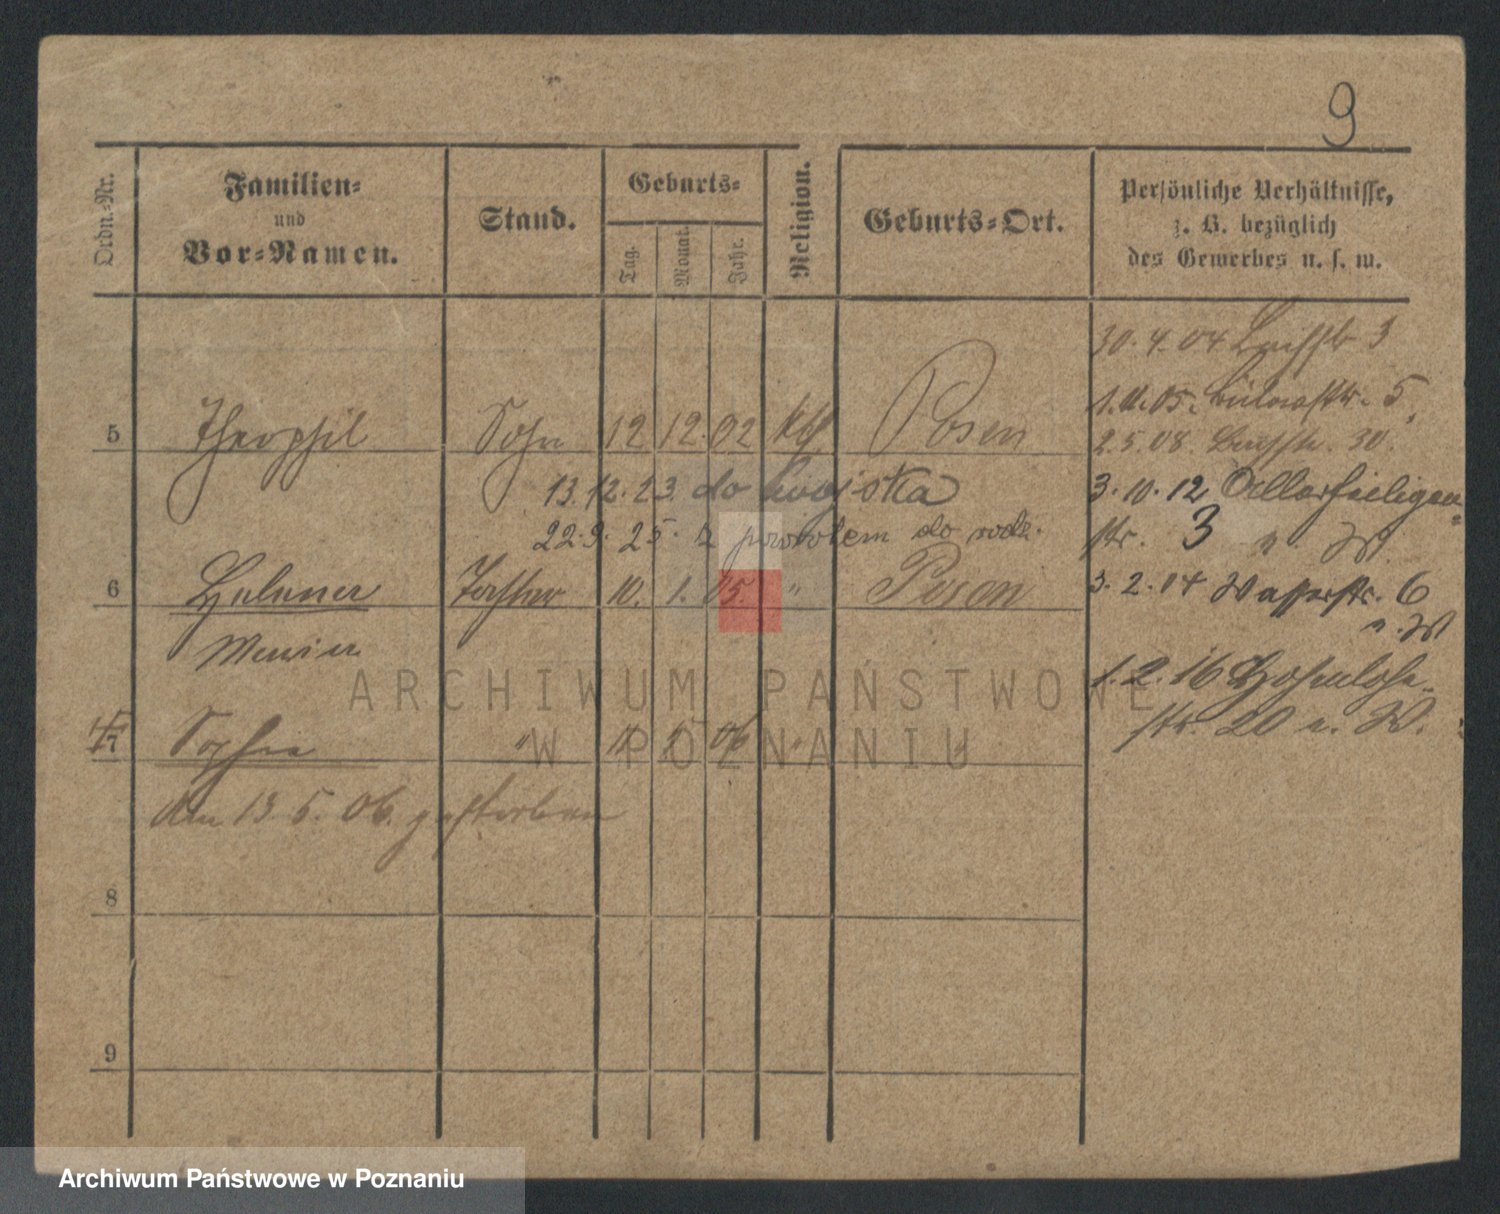 9
Ordn.-Nr.
Familien-
und
Vor-Namen.
Stand.
Geburts-
Tag.
Monat.
Jahr.
Religion.
Geburts-Ort.
Persönliche Verhältnisse,
z. B. bezüglich
des Gewerbes u. s. w.
30. 4. 04 3
5 Theophil Sohn 12 12. 02 kth Posen
1. 11. 05. 5.
2. 5. 08. 30.
13. 12. 23. do wojska
3. 10. 12. Allerheiligen-
str. 3
22. 9. 25. z powrotem do rodz.
6 Helene Tochter 10. 1. 05. " Posen
3. 2. 14 Wasserstr. 6
1. 2. 16 Hohenlohe-
str. 20
7 Sophie " 06 " "
am 13. 5. 06. gestorben
8
9
ARCHIWUM PAŃSTWOWE
W POZNANIU
Archiwum Państwowe w Poznaniu